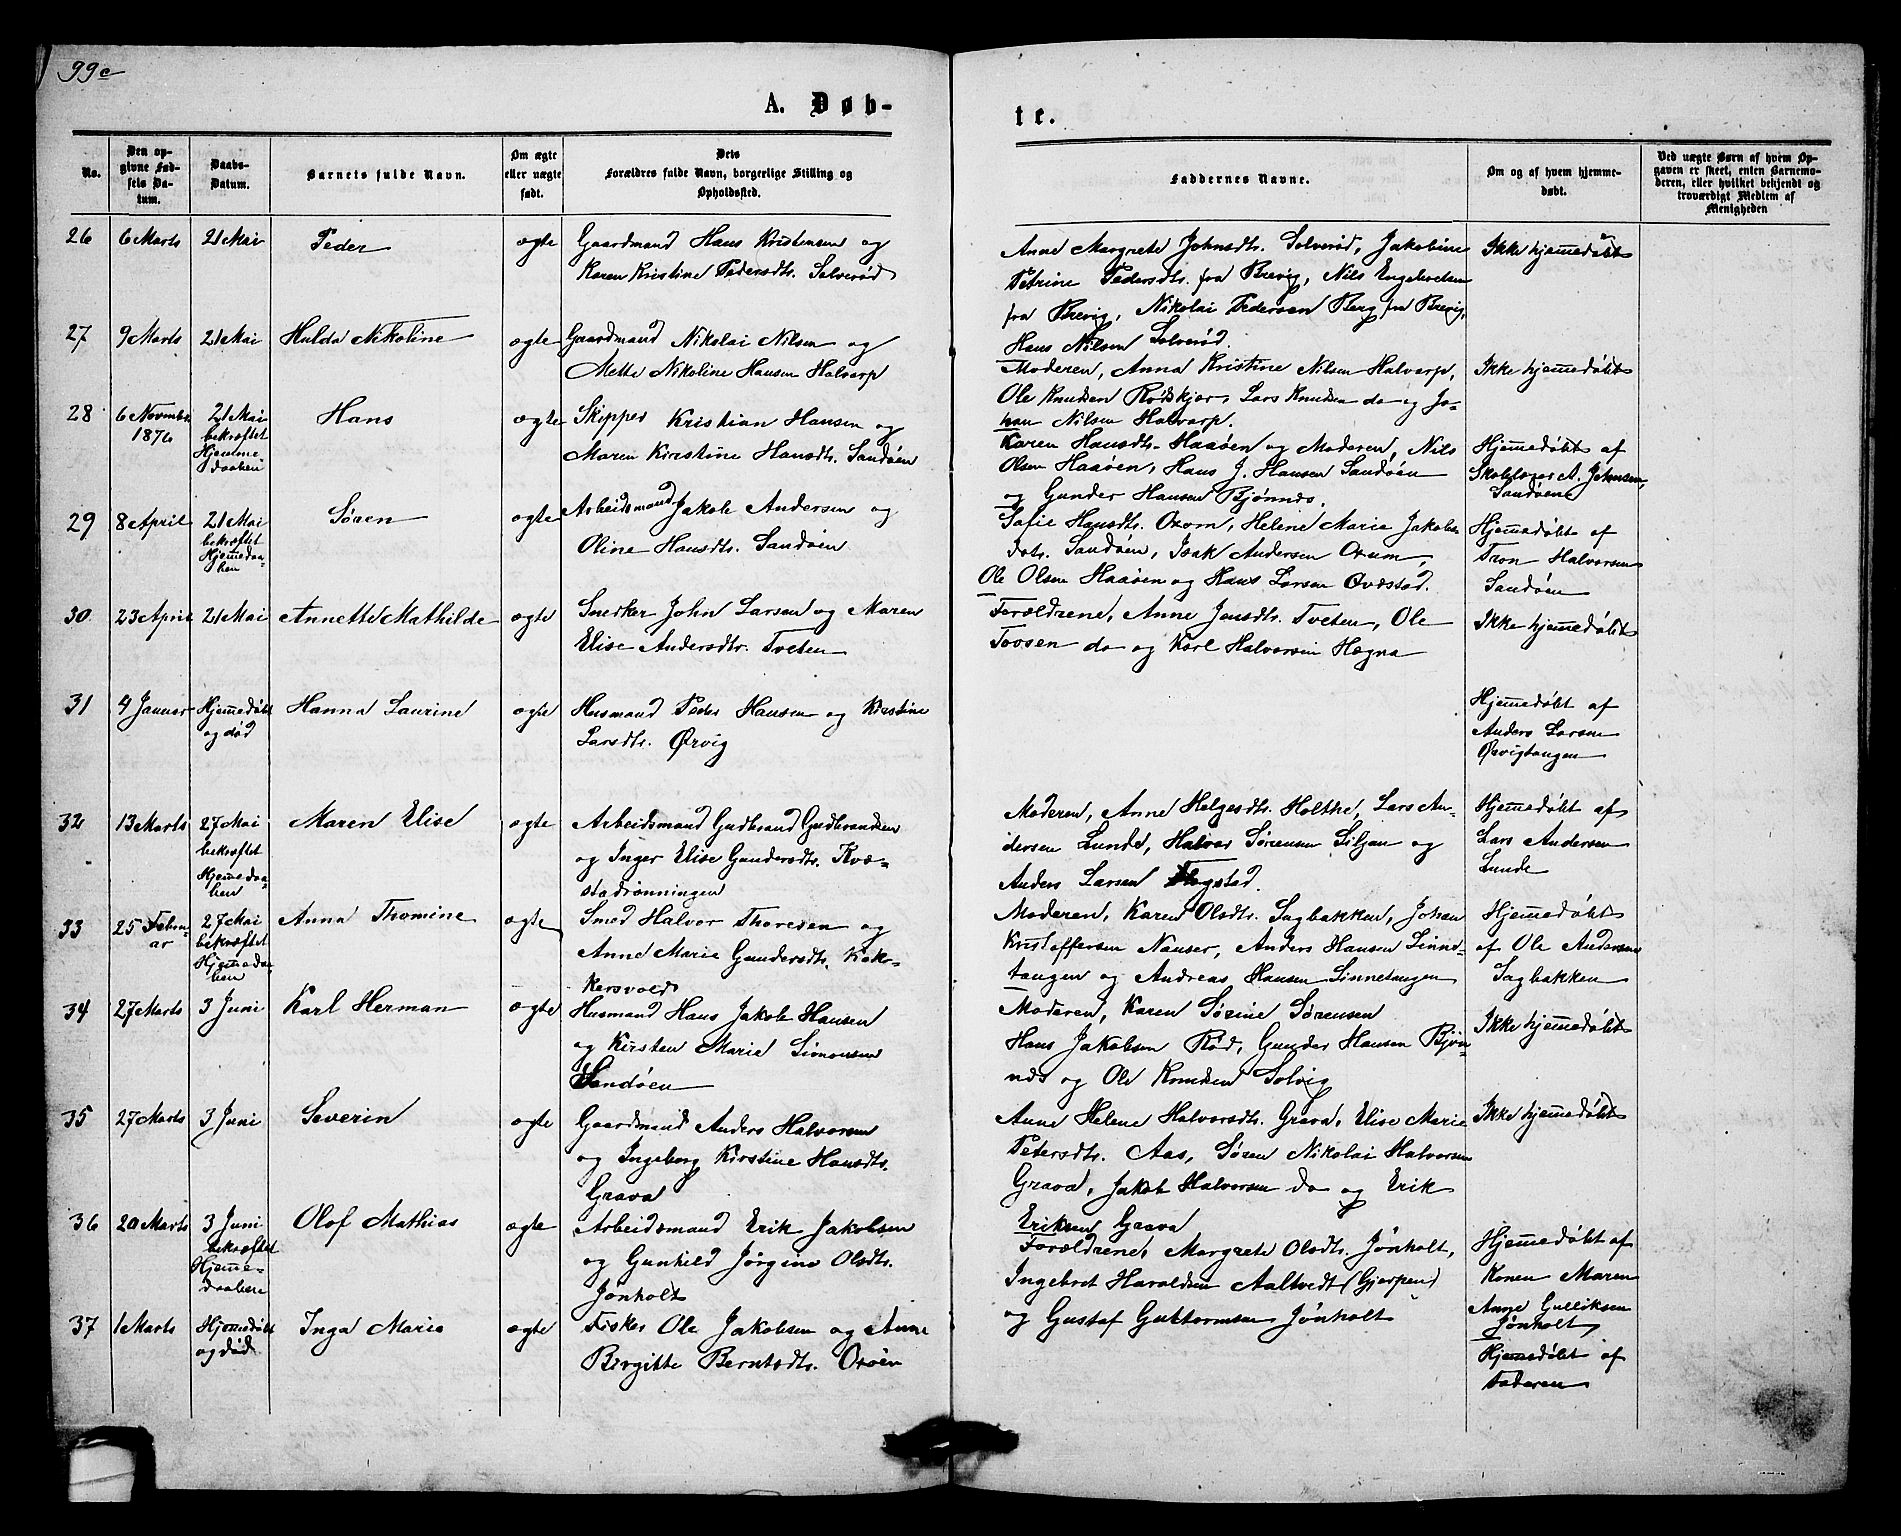 99c
A. Døb-
te.
No.
Den op-
givne Fød-
sels Da-
tum.
Daabs-
Datum.
Barnets fulde Navn.
Om ægte
eller uægte
født.
Dets
Forældres fulde Navn, borgerlige Stilling og
Opholdssted.
Faddernes Navne.
Om og af hvem hjemme-
døbt.
Ved uægte Børn af hvem Op-
gaven er skeet, enten Barnemo-
deren, eller hvilket bekjendt og
troværdigt Medlem af
Menigheden
26 6 Marts 21 Mai Peder ægte Gaardmand Hans Kristensen og
Karen Kristine Pedersdtr. Solverød
Anne Margrete Johnsdtr. Solverød, Jakobine
Petrine Pedersdtr. fra Brevig, Nils Engebretsen
fra Brevig, Nikolai Pedersen Berg fra Brevig,
Hans Nilsen Solverød.
Ikke hjemmedøbt
27 9 Marts 21 Mai Hulda Nikoline ægte Gaardmand Nikolai Nilsen og
Mette Nikoline Hansen Halvarp
Moderen, Anna Kristine Nilsen Halvarp,
Ole Knudsen Rødskjær, Lars Knudsen do og Jo-
han Nilsen Halvarp.
Ikke hjemmedøbt
28 6 Novembr
1876
21 Mai
bekræftet
Hjemme-
daaben
Hans ægte Skipper Kristian Hansen og
Maren Kirstine Hansdtr. Sandøen
Karen Hansdtr. Haaøen og Moderen, Nils
Olsen Haaøen, Hans J. Hansen Sandøen
og Gunder Hansen Bjønnæs.
Hjemmedøbt af
Skolelærer A. Johnsen,
Sandøen
29 8 April 21 Mai
bekræftet
Hjemmedaa-
ben
Søren ægte Arbeidsmand Jakob Andersen og
Oline Hansdtr. Sandøen
Sofie Hansdtr. Oxum, Helene Marie Jakobs
dtr. Sandøen, Isak Andersen Oxum,
Ole Olsen Haaøen og Hans Larsen Øvastad.
Hjemmedøbt af
Tron Halvorsen
Sandøen
30 23 April 21 Mai Annette Mathilde ægte Snedker John Larsen og Maren
Elise Andersdtr. Tveten
Forældrene, Anne Jensdtr. Tveten, Ole
Tovsen do og Karl Halvorsen Høgna
Ikke hjemmedøbt
31 4 Januar Hjemmedøbt
og død
Hanna Laurine ægte Husmand Peder Hansen og Kirstine
Larsdtr. Ørvig
Hjemmedøbt af
Anders Larsen
Ørvigtangen
32 13 Marts 27 Mai
bekræftet
Hjemmedaa-
ben
Maren Elise ægte Arbeidsmand Gudbrand Gudbrandsen
og Inger Elise Gundersdtr. Kvæ-
stadrønningen
Moderen, Anne Helgesdtr. Holthe, Lars An-
dersen Lunde, Halvor Sørensen Siljan og
Anders Larsen Flogstad.
Hjemmedøbt af
Lars Andersen
Lunde
33 25 Febru-
ar
27 Mai
bekræftet
Hjemmedaa-
ben
Anna Thomine ægte Smed Halvor Thoresen og
Anne Marie Gundersdtr. Kokke-
kersvold
Moderen, Karen Olsdtr. Sagbakken, Johan
Kristoffersen Nauser, Anders Hansen Linne-
tangen og Andreas Hansen Linnetangen
Hjemmedøbt
af Ole Andersen
Sagbakken
34 27 Marts 3 Juni Karl Herman ægte Husmand Hans Jakob Hansen
og Kirsten Marie Simonsen
Sandøen
Moderen, Karen Sørine Sørensen
Hans Jakobsen Rød, Gunder Hansen Bjøn-
næs og Ole Knudsen Solvig
Ikke hjemmedøbt
35 27 Marts 3 Juni Severin ægte Gaardmand Anders Halvorsen
og Ingeborg Kirstine Hansdtr.
Grava
Anne Helene Halvorsdtr. Grava, Elise Marie
Petersdtr. Aas, Søren Nikolai Halvorsen
Grava, Jakob Halvorsen do og Erik
Eriksen Grava
Ikke hjemmedøbt
36 20 Marts 3 Juni
bekræftet
Hjemme-
daaben
Olof Mathias ægte Arbeidsmand Erik Jakobsen
og Gunhild Jørgine Olsdtr.
Jønholt
Forældrene, Margrete Olsdtr. Jønholt,
Ingebret Haraldsen Aaltvedt (Gjerpen)
og Gustaf Guttormsen Jønholt
Hjemmedøbt af
Konen Maren
Anne Gulliksen
Jønholt
37 1 Marts Hjemmedøbt
og død
Inga Marie ægte Fisker Ole Jakobsen og Anne
Birgitte Berntsdtr. Oxøen
Hjemmedøbt af
Faderen